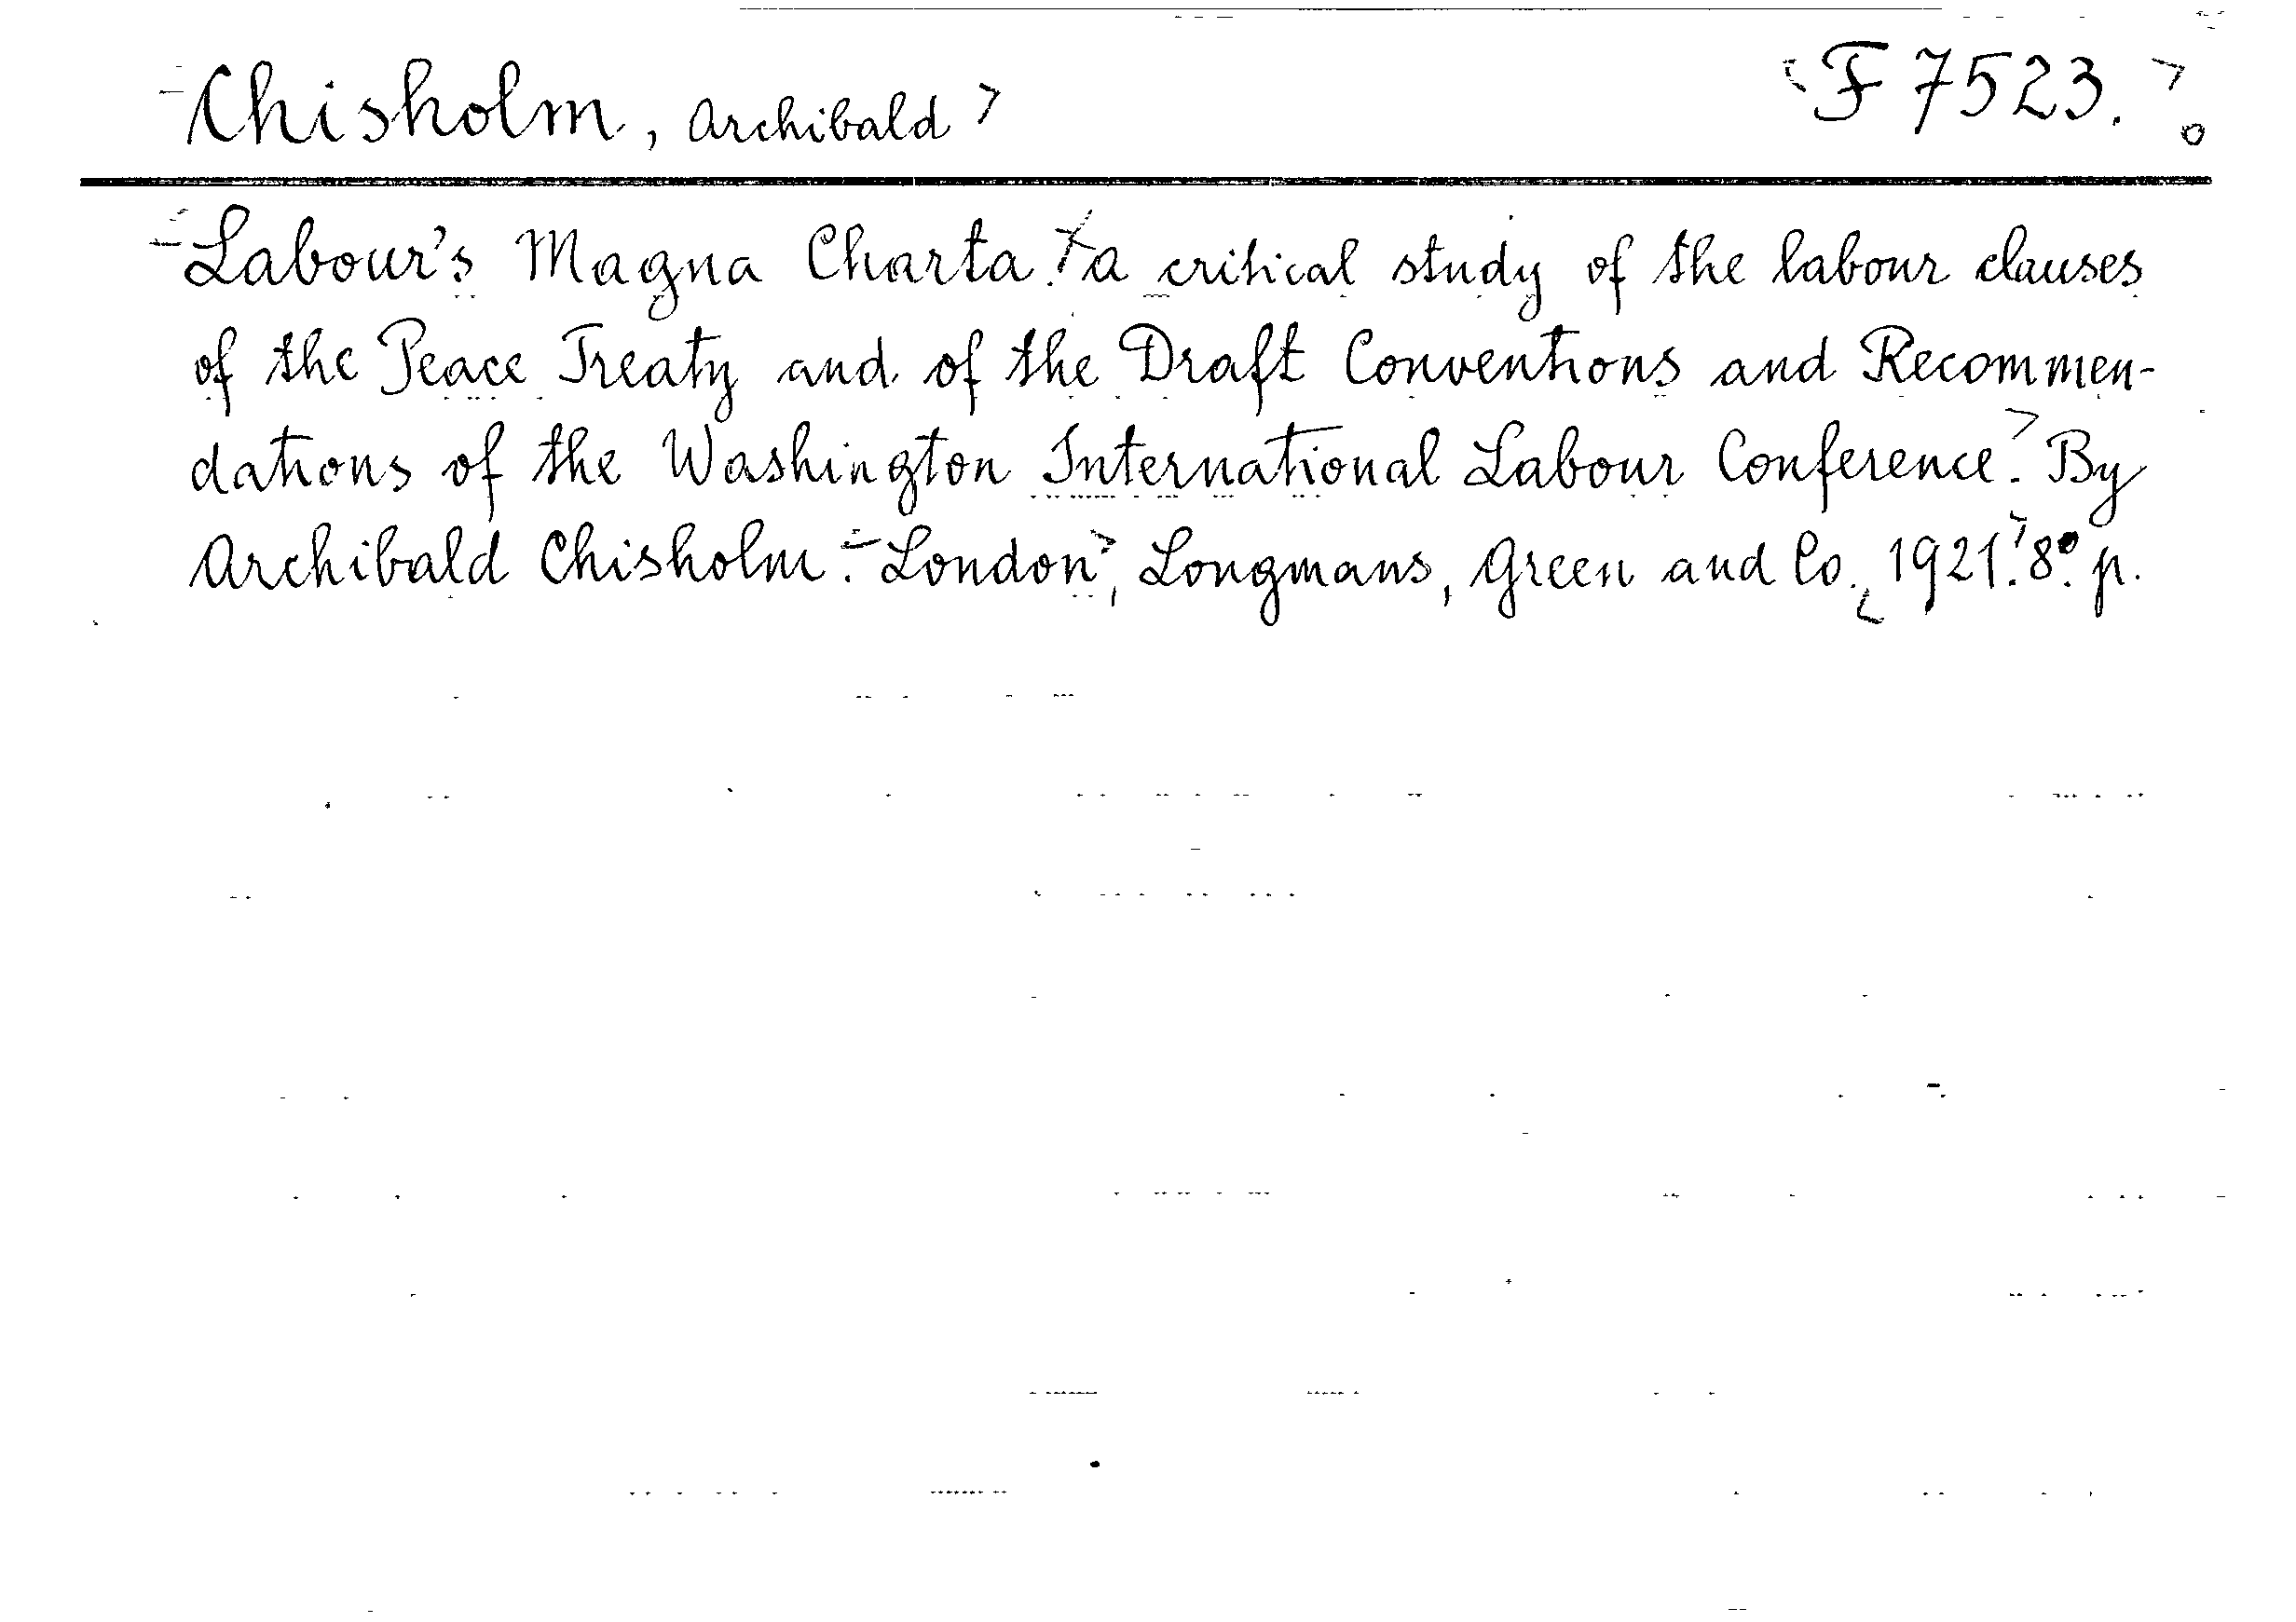 Chisholm, Archibald
F 7523.
Labour's Magna Charta. a critical study of the labour clauses
of the Peace Treaty and of the Draft Conventions and Recommen-
dations of the Washington International Labour Conference. By
Archibald Chisholm. London, Longmans, Green and Co., 1921. 8° p.